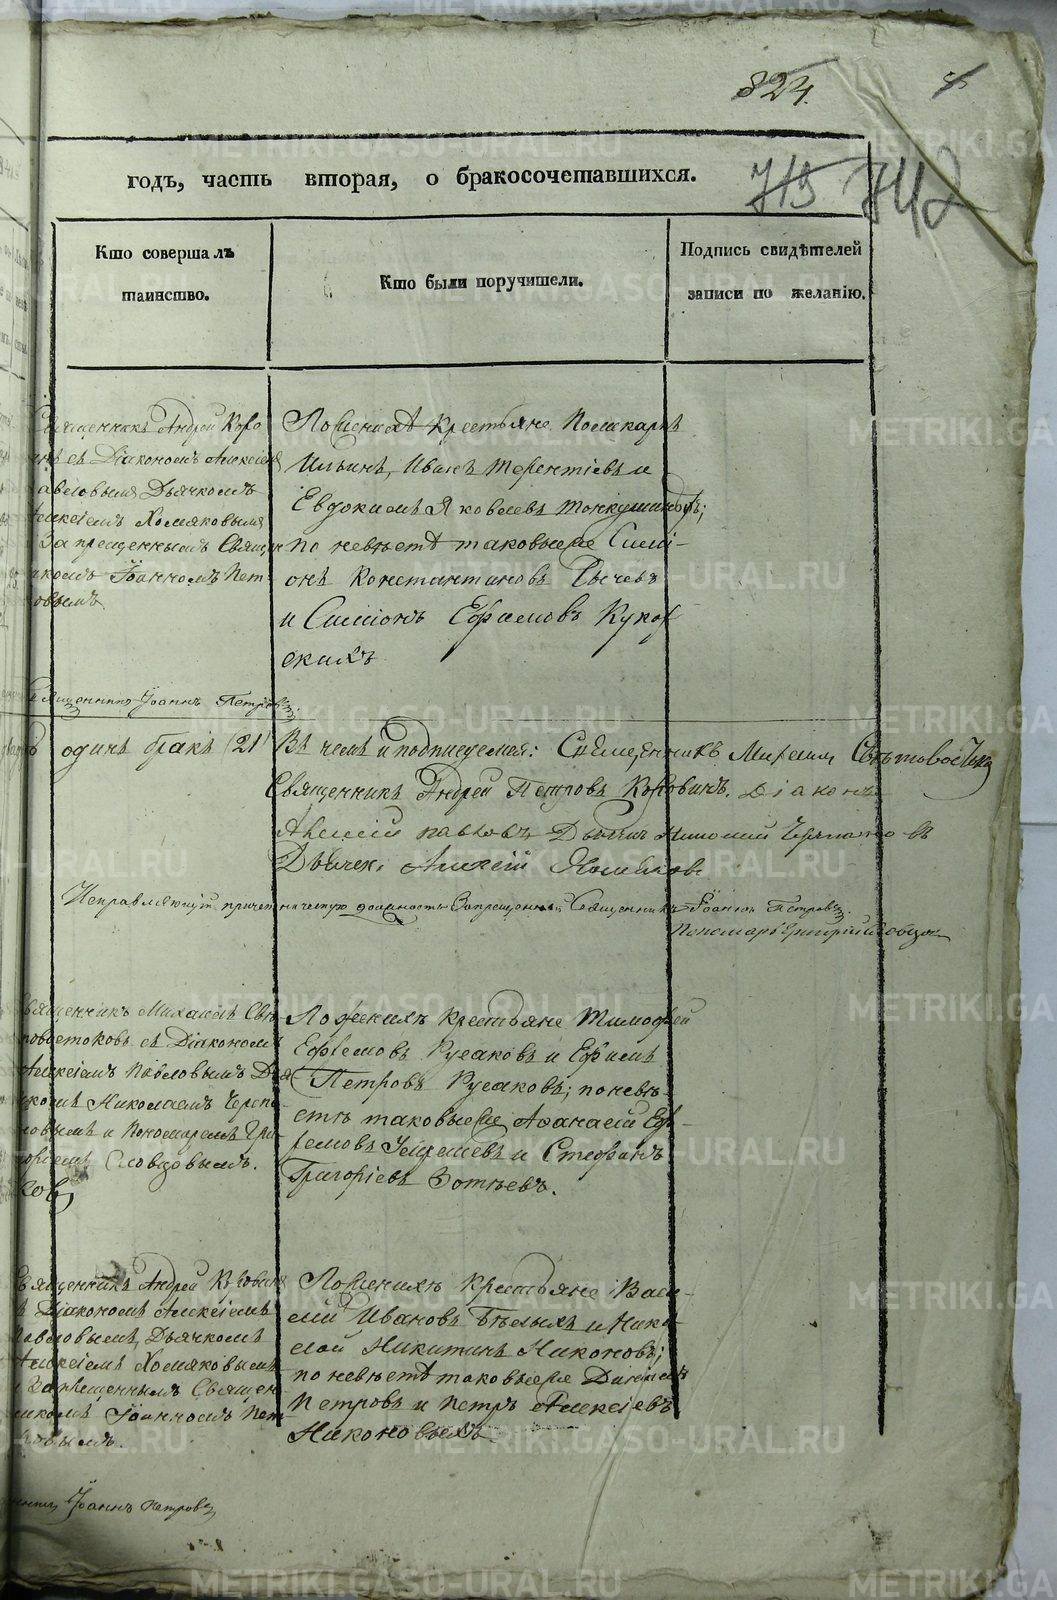 824.
713 742
годъ, часть вторая, о бракосочетавшихся.
Кто совершалъ
таинство.
Кто были поручители.
Подпись свидѣтелей
записи по желанію.
Священникъ Андрей Коро
съ Діакономъ Алексіемъ
Павловымъ Дьячкомъ
Алексіемъ Хомяковымъ
Запрещеннымъ Священ
комъ Іоанномъ Пет
ровымъ
По женихѣ крестьяне Поликарпъ
Ильинъ, Иванъ Терентіевъ и
Евдокимъ Яковлевъ
по невѣстѣ таковыеже Симі-
онъ Константиновъ
и Симіонъ Ефимовъ
скихъ
Священникъ Іоаннъ Петровъ
одинъ бракъ (21) Въ чемъ и подписуемся: Священникъ Михаилъ Свѣтовостоковъ
Священникъ Андрей Петровъ Коровинъ. Діаконъ
Алексій Павловъ Дьячекъ Николай
Дьячекъ Алексій Хомяковъ
Исправляющій причетническую должность Запрещенный Священникъ Іоаннъ Петровъ.
Пономарь Григорій Словцовъ
Священникъ Михаилъ Свѣ-
товостоковъ съ Діакономъ
Алексіемъ Павловымъ Дья
комъ Николаемъ Черепа-
новымъ и Пономаремъ Гри-
горіемъ Словцовымъ.
По женихѣ крестьяне Тимофей
Ефремовъ Русаковъ и Ефимъ
Петровъ Русаковъ; по невѣ-
стѣ таковыеже Афанасій Еф-
ремовъ и Стефанъ
Григоріевъ Зотѣевъ.
Священникъ Андрей Коровинъ
съ Діакономъ Алексіемъ
Павловымъ, Дьячкомъ
Алексіемъ Хомяковымъ
Запрещеннымъ Священ
никомъ Іоанномъ Пет-
ровымъ.
По женихѣ крестьяне Васи-
лій Ивановъ Бѣлыхъ и Нико-
лай Никитинъ Никоновъ;
по невѣстѣ таковыеже Данилъ
Петровъ и Петръ Алексіевъ
Никоновыхъ
Іоаннъ Петровъ
METRIKI.GASO-URAL.RU